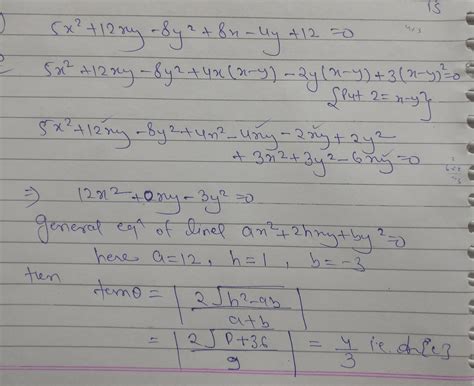 15
5x² + 12xy - 8y² + 8x - 4y + 12 = 0
5x² + 12xy - 8y² + 4x(x-y) - 2y(x-y) + 3(x-y)² = 0
{Put 2 = x-y}
5x² + 12xy - 8y² + 4x² - 4xy - 2xy + 2y²
+ 3x² + 3y² - 6xy = 0
⇒ 12x² + 0xy - 3y² = 0
General eqⁿ of lines ax² + 2hxy + by² = 0
here a = 12, h = 1, b = -3
ten
tanθ = | 2√h²-ab / a+b |
= | 2√0+36 / 9 | = 4/3 i.e.